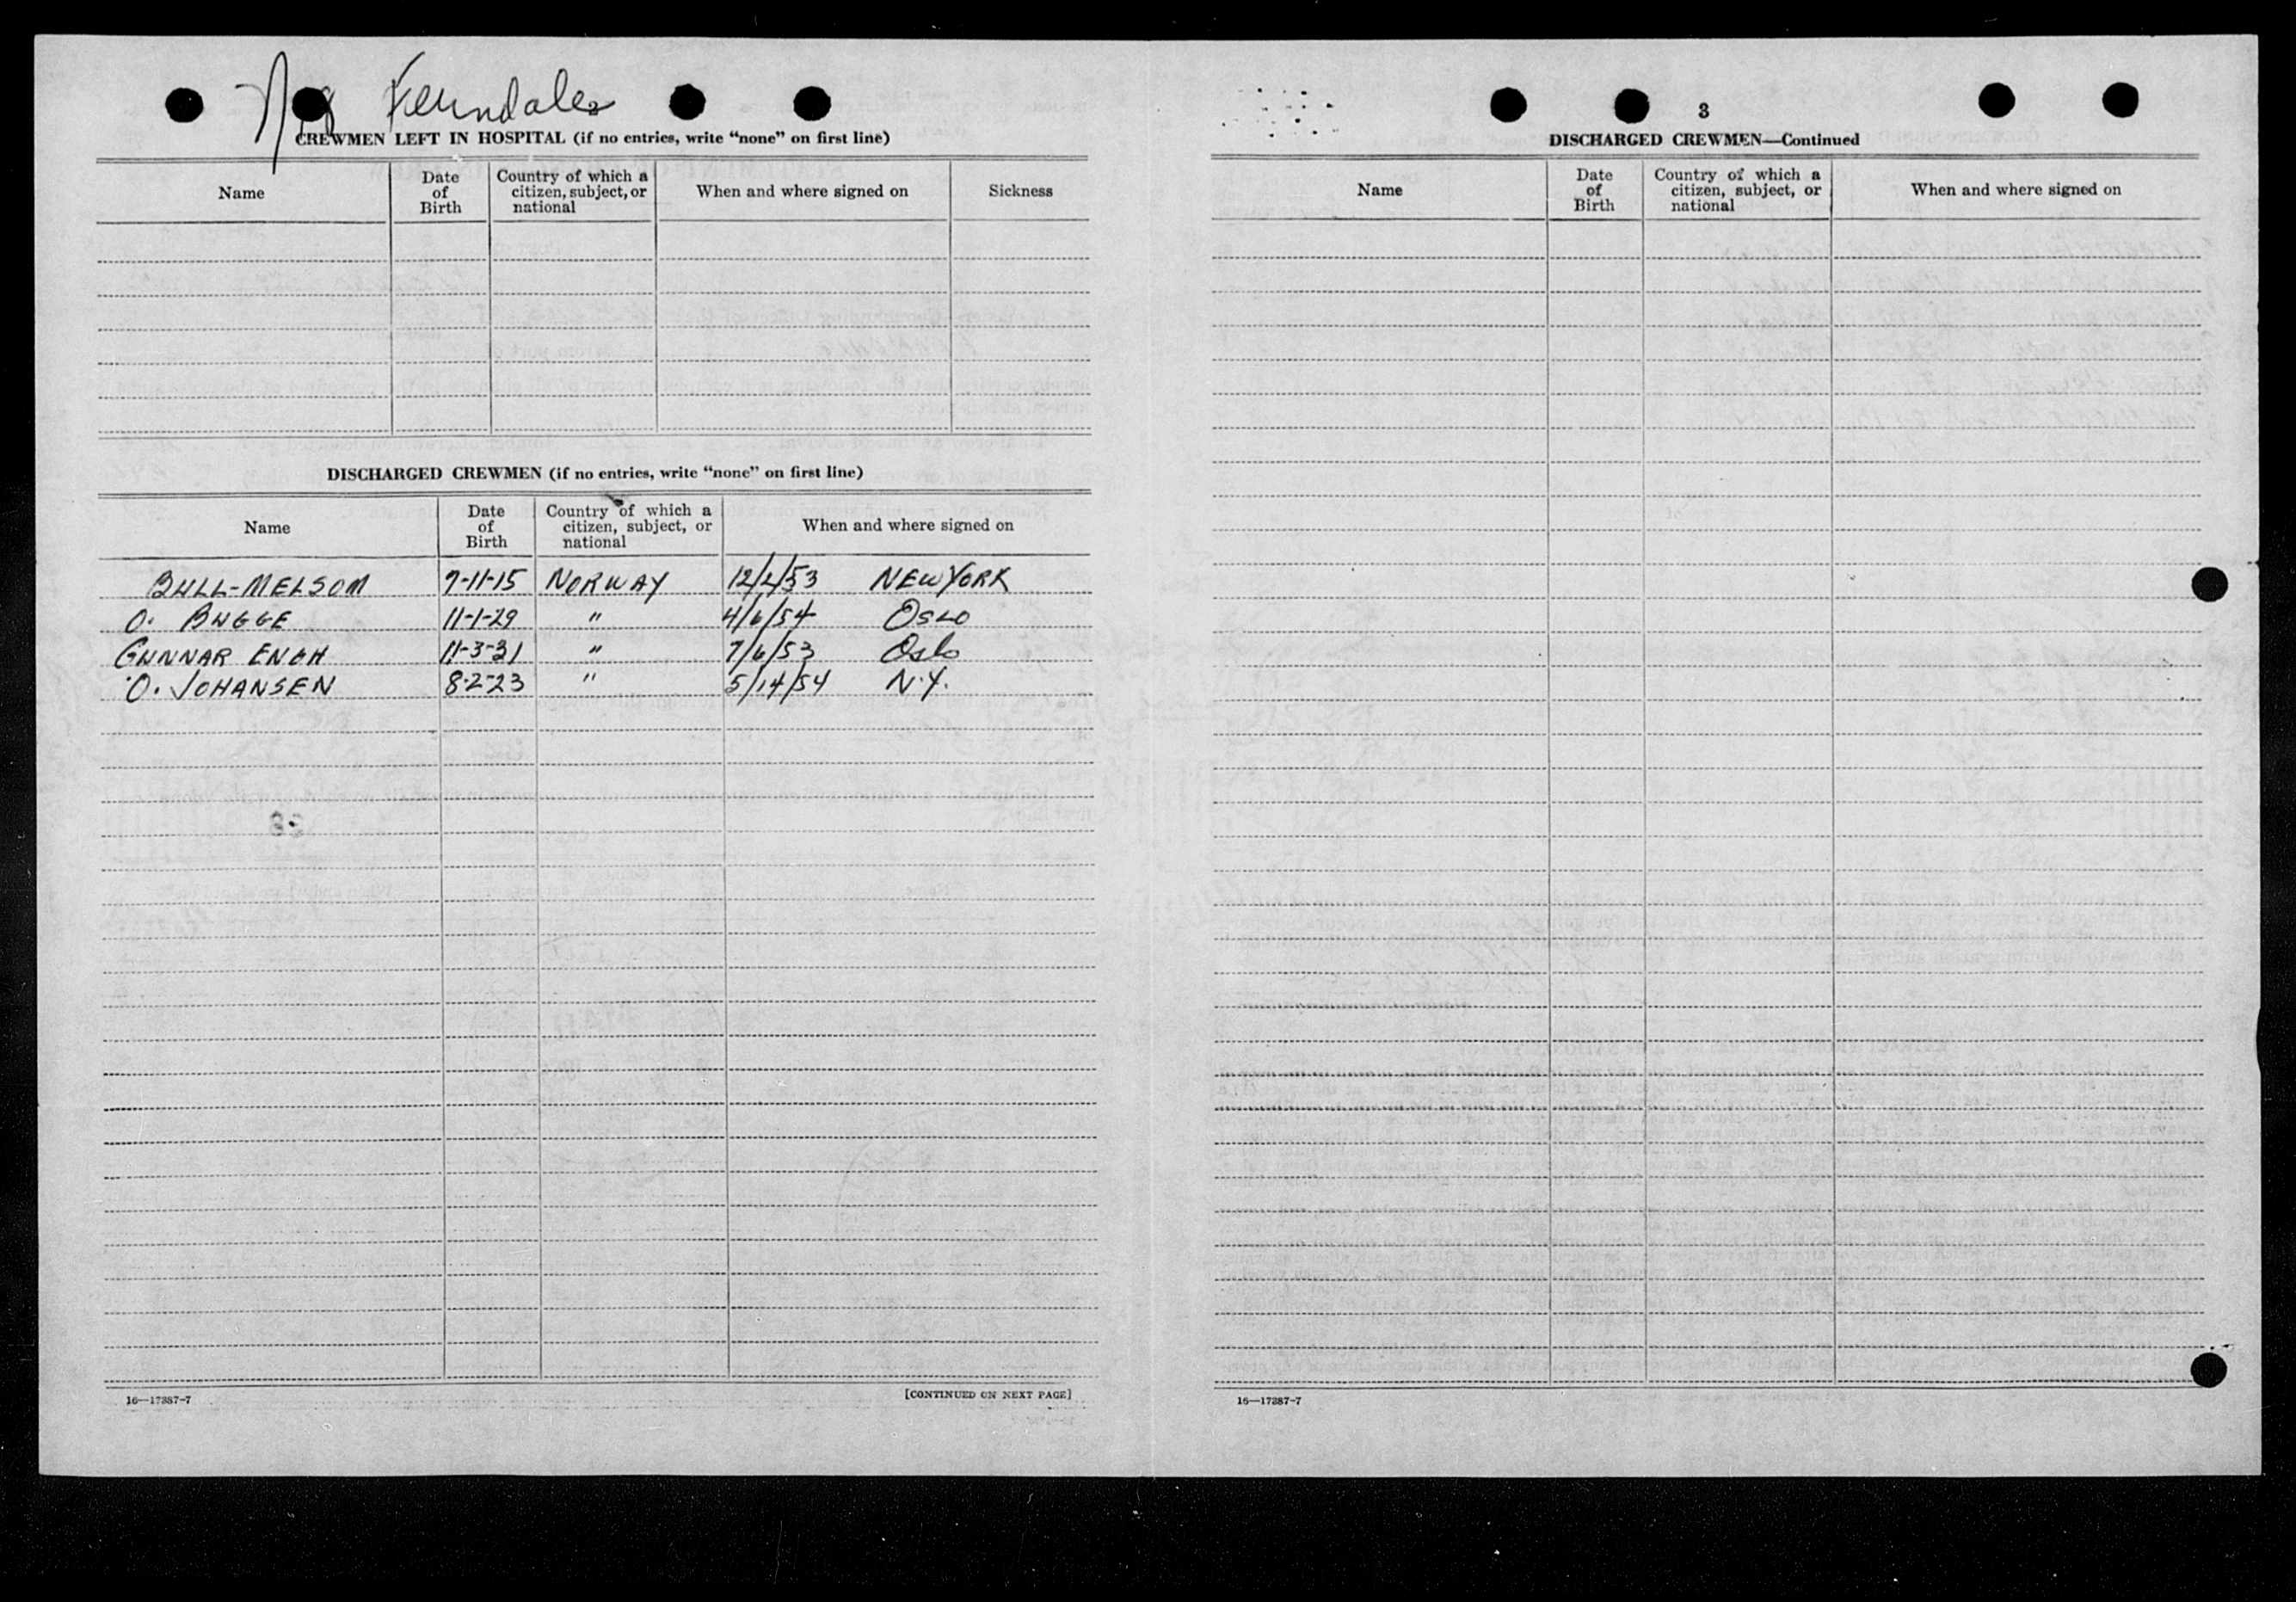 Ferndale
CREWMEN LEFT IN HOSPITAL (if no entries, write “none” on first line)
Name
Date of Birth
Country of which a citizen, subject, or national
When and where signed on
Sickness
DISCHARGED CREWMEN (if no entries, write “none” on first line)
Name
Date of Birth
Country of which a citizen, subject, or national
When and where signed on
BULL-MELSOM 7-11-15 NORWAY 12/2/53 NEW YORK
O. BUGGE 11-1-29 " 4/6/54 OSLO
GUNNAR ENGH 11-3-31 " 7/6/53 Oslo
O. JOHANSEN 8-2-23 " 5/14/54 N.Y.
[CONTINUED ON NEXT PAGE]
16—17387-7
3
DISCHARGED CREWMEN—Continued
Name
Date of Birth
Country of which a citizen, subject, or national
When and where signed on
16—17387-7